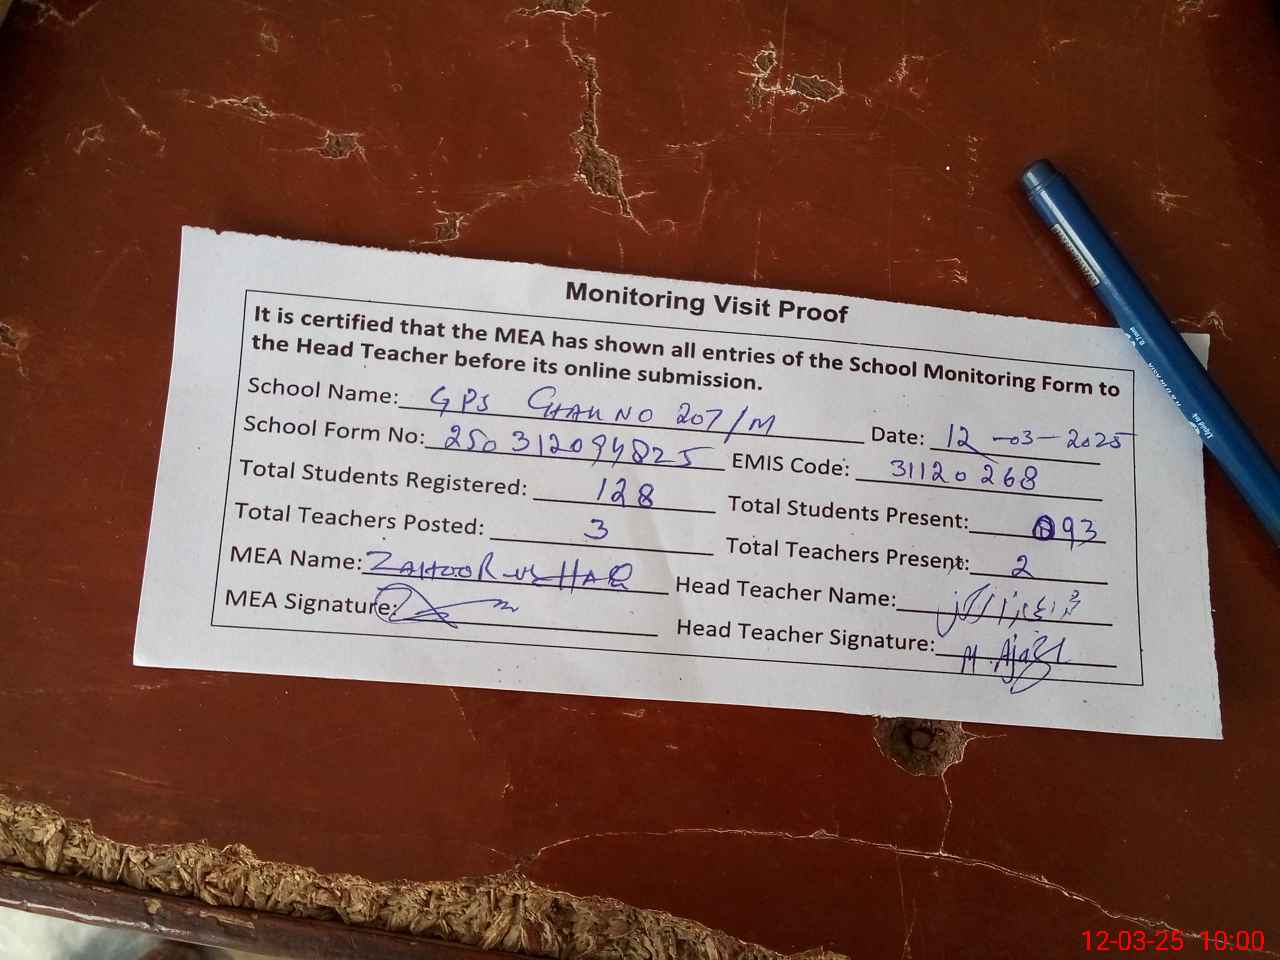 Monitoring Visit Proof
It is certified that the MEA has shown all entries of the School Monitoring Form to
the Head Teacher before its online submission.
School Name: GPS CHAK NO 207/M Date: 12-03-2025
School Form No: 250312094825 EMIS Code: 31120268
Total Students Registered: 128 Total Students Present: 93
Total Teachers Posted: 3 Total Teachers Present: 2
MEA Name: ZAHOOR-UL-HAQ Head Teacher Name:
MEA Signature: Head Teacher Signature: M. Ajaz
Liquid Ink
12-03-25 10:00